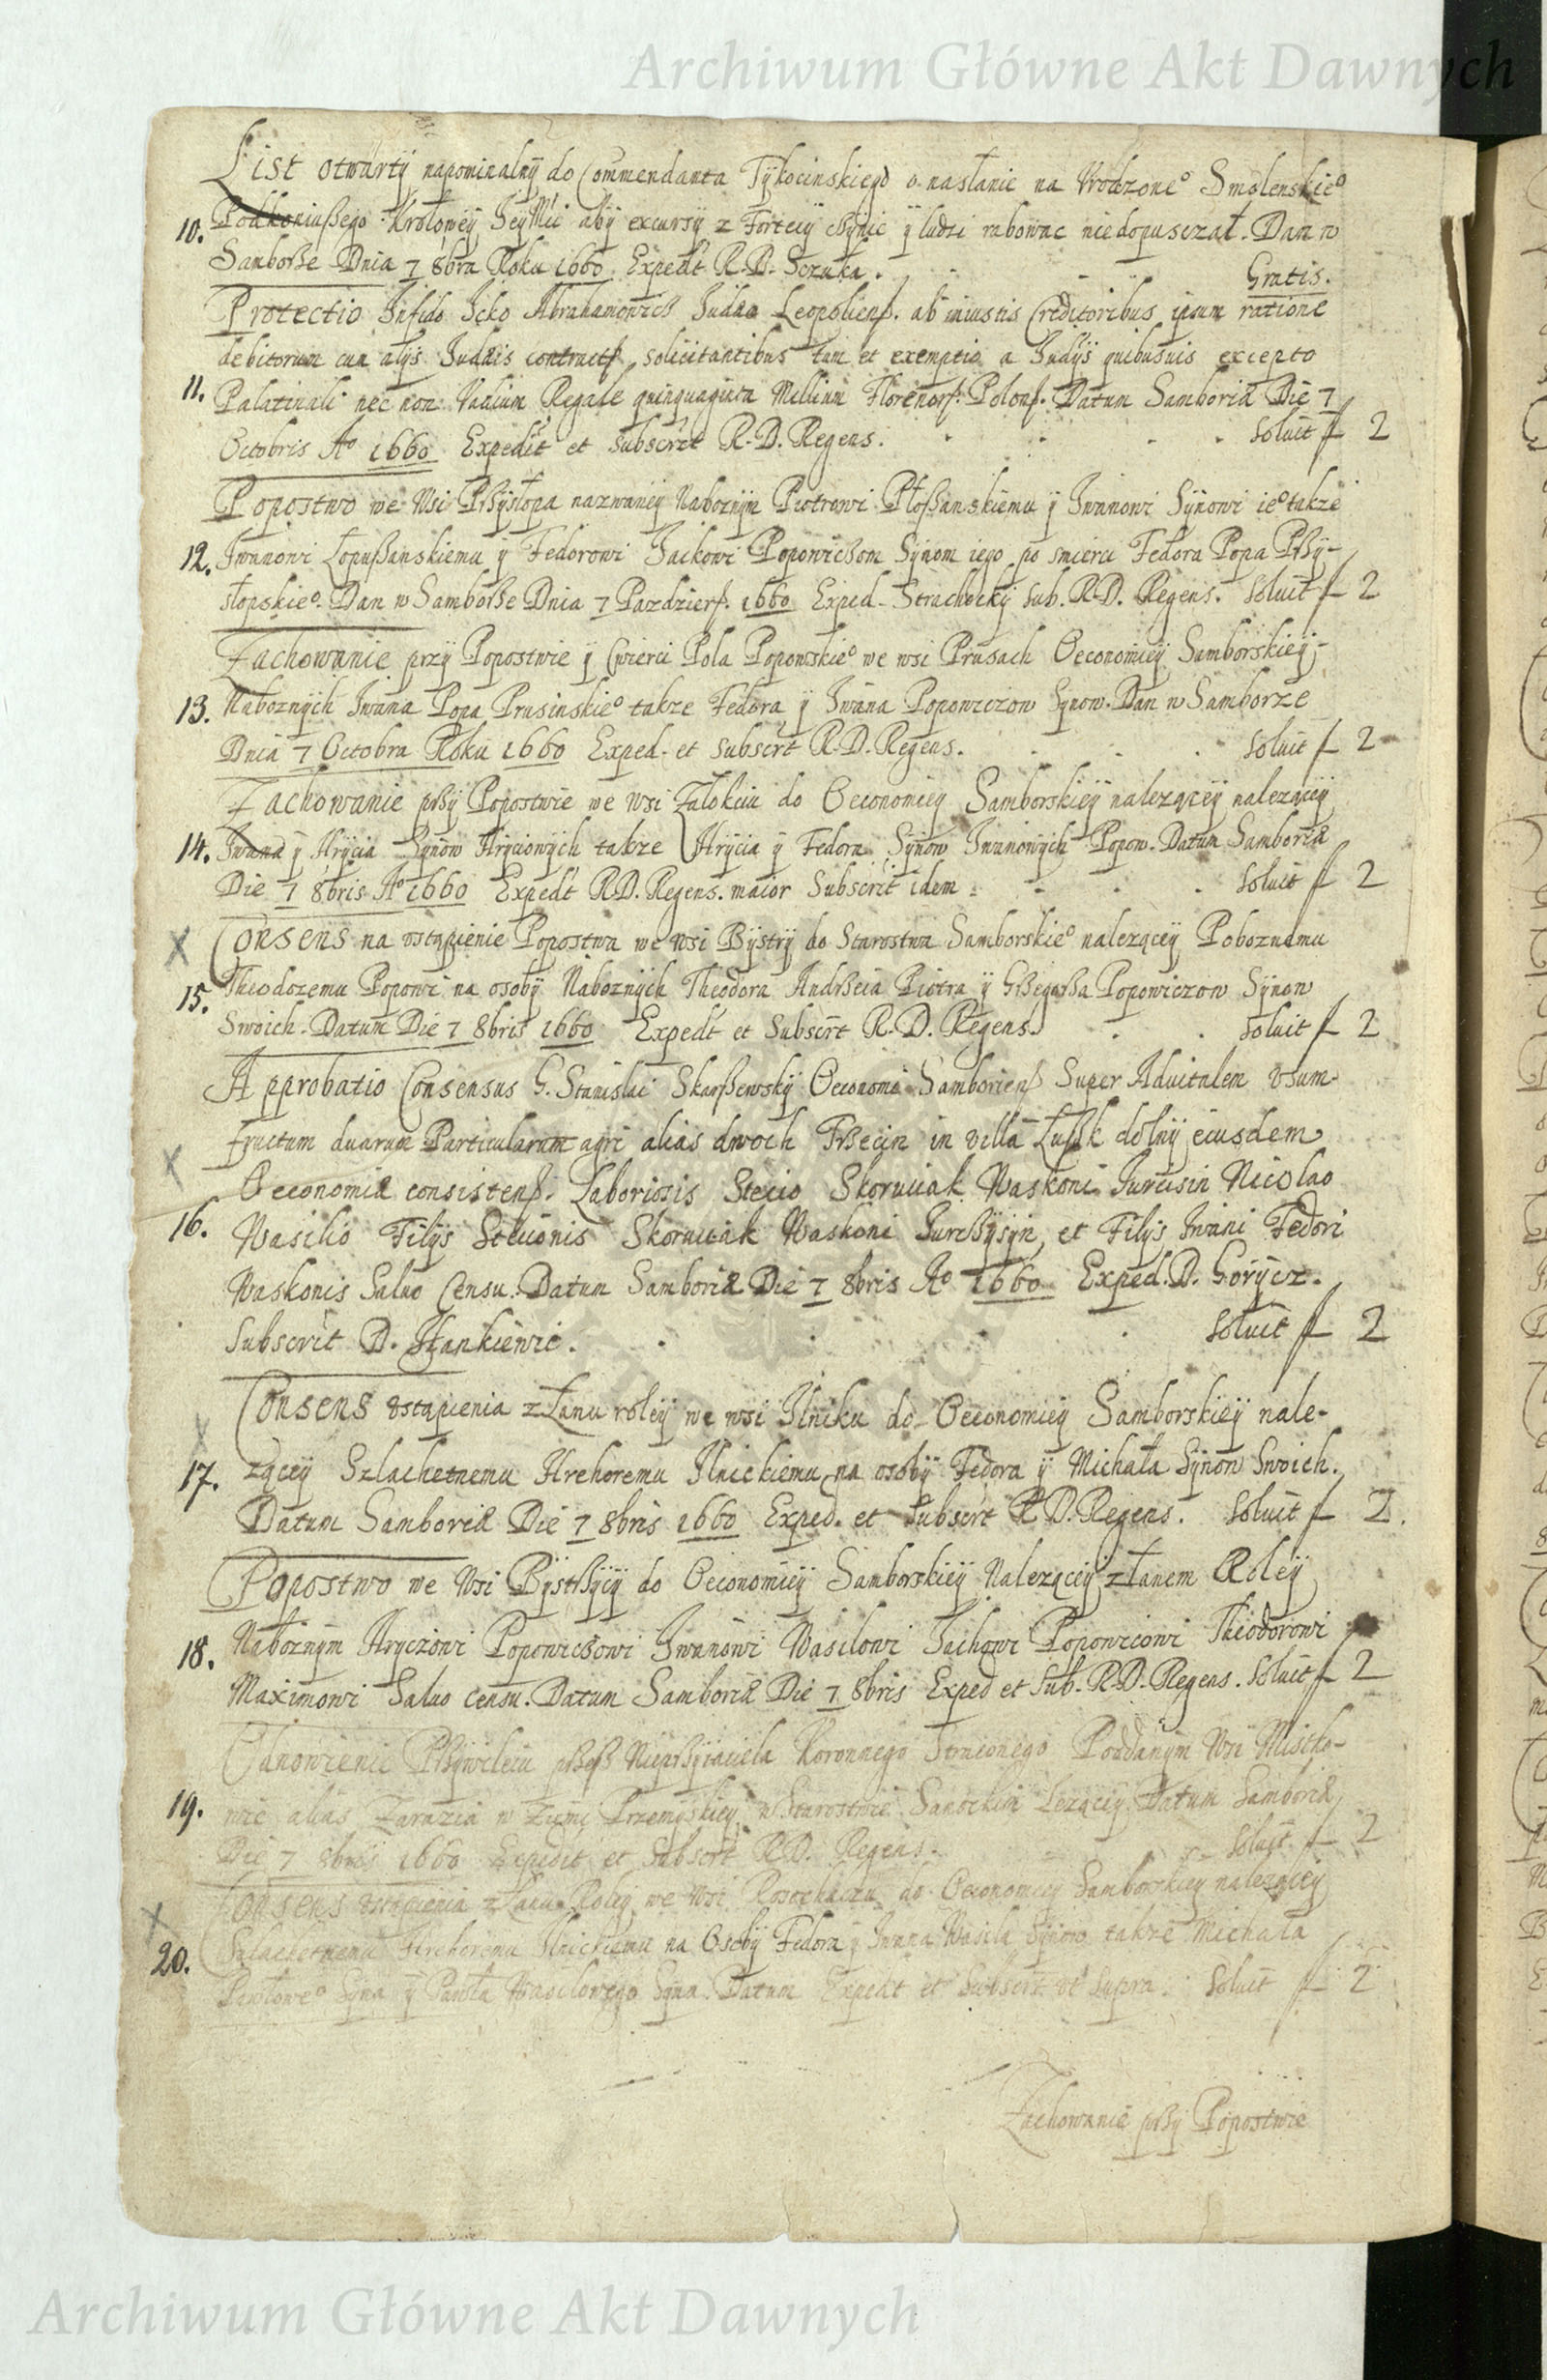 Archiwum Główne Akt Dawnych
List otwartÿ napominalnÿ do Commendanta Tÿkocinskiego o nasłanie na Urodzone° Smolenskie°
10. Podkoniußego Krolowey JeyMci abÿ excursÿ z Fortecÿ cżÿnić ÿ ludzi rabowac niedopusczał. Dan w
Samborße Dnia 7 8bra Roku 1660 Expedit R. D. Sczuka. Gratis.
Protectio Infido Icko Abrahamowicß Judæo Leopolienß. ab iniustis Creditoribus ipsum ratione
debitorum cum alijs Judæis contractß solicitantibus tum et exemptio a Judijs quibusuis excepto
11. Palatinali nec non Vadium Regale quinquaginta Millium Florenorß. Polonß. Datum Samboriæ Die 7
Octobris A° 1660 Expedit et subscrit R. D. Regens. Soluit f 2
Popostwo we Wsi Pßysłopa nazwaneÿ Naboznÿm Piotrowi Płoßanskiemu ÿ Iwanowi Sÿnowi ie° takze
12. Iwanowi Łopußanskiemu ÿ Fedorowi Jackowi Popowicßom Sÿnom iego po smierci Fedora Popa Pßÿ-
słopskie°. Dan w Samborße Dnia 7 Pazdzierß. 1660 Exped. Strachockÿ sub. R. D. Regens. Soluit f 2
Zachowanie przÿ Popostwie ÿ Cwierci Pola Popowskie° we wsi Prusach Oeconomieÿ Samborskieÿ
13. Naboznÿch Iwana Popa Prusinskie° takze Fedora ÿ Iwana Popowiczow Sÿnow. Dan w Samborze
Dnia 7 Octobra Roku 1660 Exped. et subscrt R. D. Regens. Soluit f 2
Zachowanie pßÿ Popostwie we Wsi Załokciu do Oeconomieÿ Samborskieÿ nalezącÿ nalezącÿ
14. Iwana ÿ Hrÿcia Sÿnow Hrÿciowÿch takze Hrÿcia ÿ Fedora Sÿnow Iwanowÿch Popow. Datum Samboriæ
Die 7 8bris A° 1660 Expedt R. D. Regens. maior Subscrit idem. Soluit f 2
Consens na vstąpienie Popostwa we Wsi Bÿstrÿ do Starostwa Samborskie° nalezącÿ Poboznemu
15. Theodozemu Popowi na osobÿ Naboznÿch Theodora Andrßeia Piotra ÿ Gßegorßa Popowiczow Sÿnow
Swoich. Datum Die 7 8bris 1660 Expedt et Subscrt R. D. Regens. Soluit f 2
Approbatio Consensus G. Stanislai Skarßewskÿ Oeconomi Samborienß Super Aduitalem Vsum-
fructum duarum Particularum agri alias dwoch Trßecin in villa Łußk dolnÿ eiusdem
Oeconomiæ consistenß. Laboriosis Stecio Skoruciak Waskoni Jurcisin Nicolao
16. Wasilio Filÿs Stecionis Skoruciak Waskoni Jurcßÿsÿn, et Filÿs Iwani Fedori
Waskonis Saluo Censu. Datum Samboriæ Die 7 8bris A° 1660 Exped. D. Gorÿcz.
Subscrit D. Hankiewic. Soluit f 2
Consens vstąpienia z Łanu roleÿ we wsi Ilniku do Oeconomieÿ Samborskieÿ nale-
17. zącÿ Szlachetnemu Hrehoremu Ilnickiemu na osobÿ Fedora ÿ Michała Sÿnow Swoich.
Datum Samboriæ Die 7 8bris 1660 Exped. et Subscrt R. D. Regens. Soluit f 2.
Popostwo we Wsi Bÿstßÿcÿ do Oeconomieÿ Samborskieÿ Nalezącÿ z Łanem Roleÿ
18. Naboznÿm Hryczowi Popowicßowi Iwanowi Wasilowi Jachowi Popowiciowi Theodorowi
Maximowi Saluo Censu. Datum Samboriæ Die 7 8bris Exped et Sub. R. D. Regens. Soluit f 2
Odnowienie Pßÿwileiu pßeß Niepßÿiaciela Koronnego Poddanÿm Wsi Misció-
19. wic alias Zarazia w Ziemi Przemÿskieÿ w Starostwie Lezącÿ. Datum Samboriæ
Die 7 8bris 1660 Expedit et Subscrt R. D. Regens. Soluit f 2
Consens vstąpienia z Łanu Roleÿ we Wsi Rosochaczu do Oeconomieÿ Samborskieÿ nalezącÿ
20. Szlachetnemu Hrehoremu Ilnickiemu na Osobÿ Fedora ÿ Iwana Wasila Sÿnow takze Michała
Pawłowe° Sÿna ÿ Pawła Wasilowego Sÿna. Datum Expedt et Subscrt vt supra. Soluit f 2
Zachowanie pßÿ Popostwie
Archiwum Główne Akt Dawnych